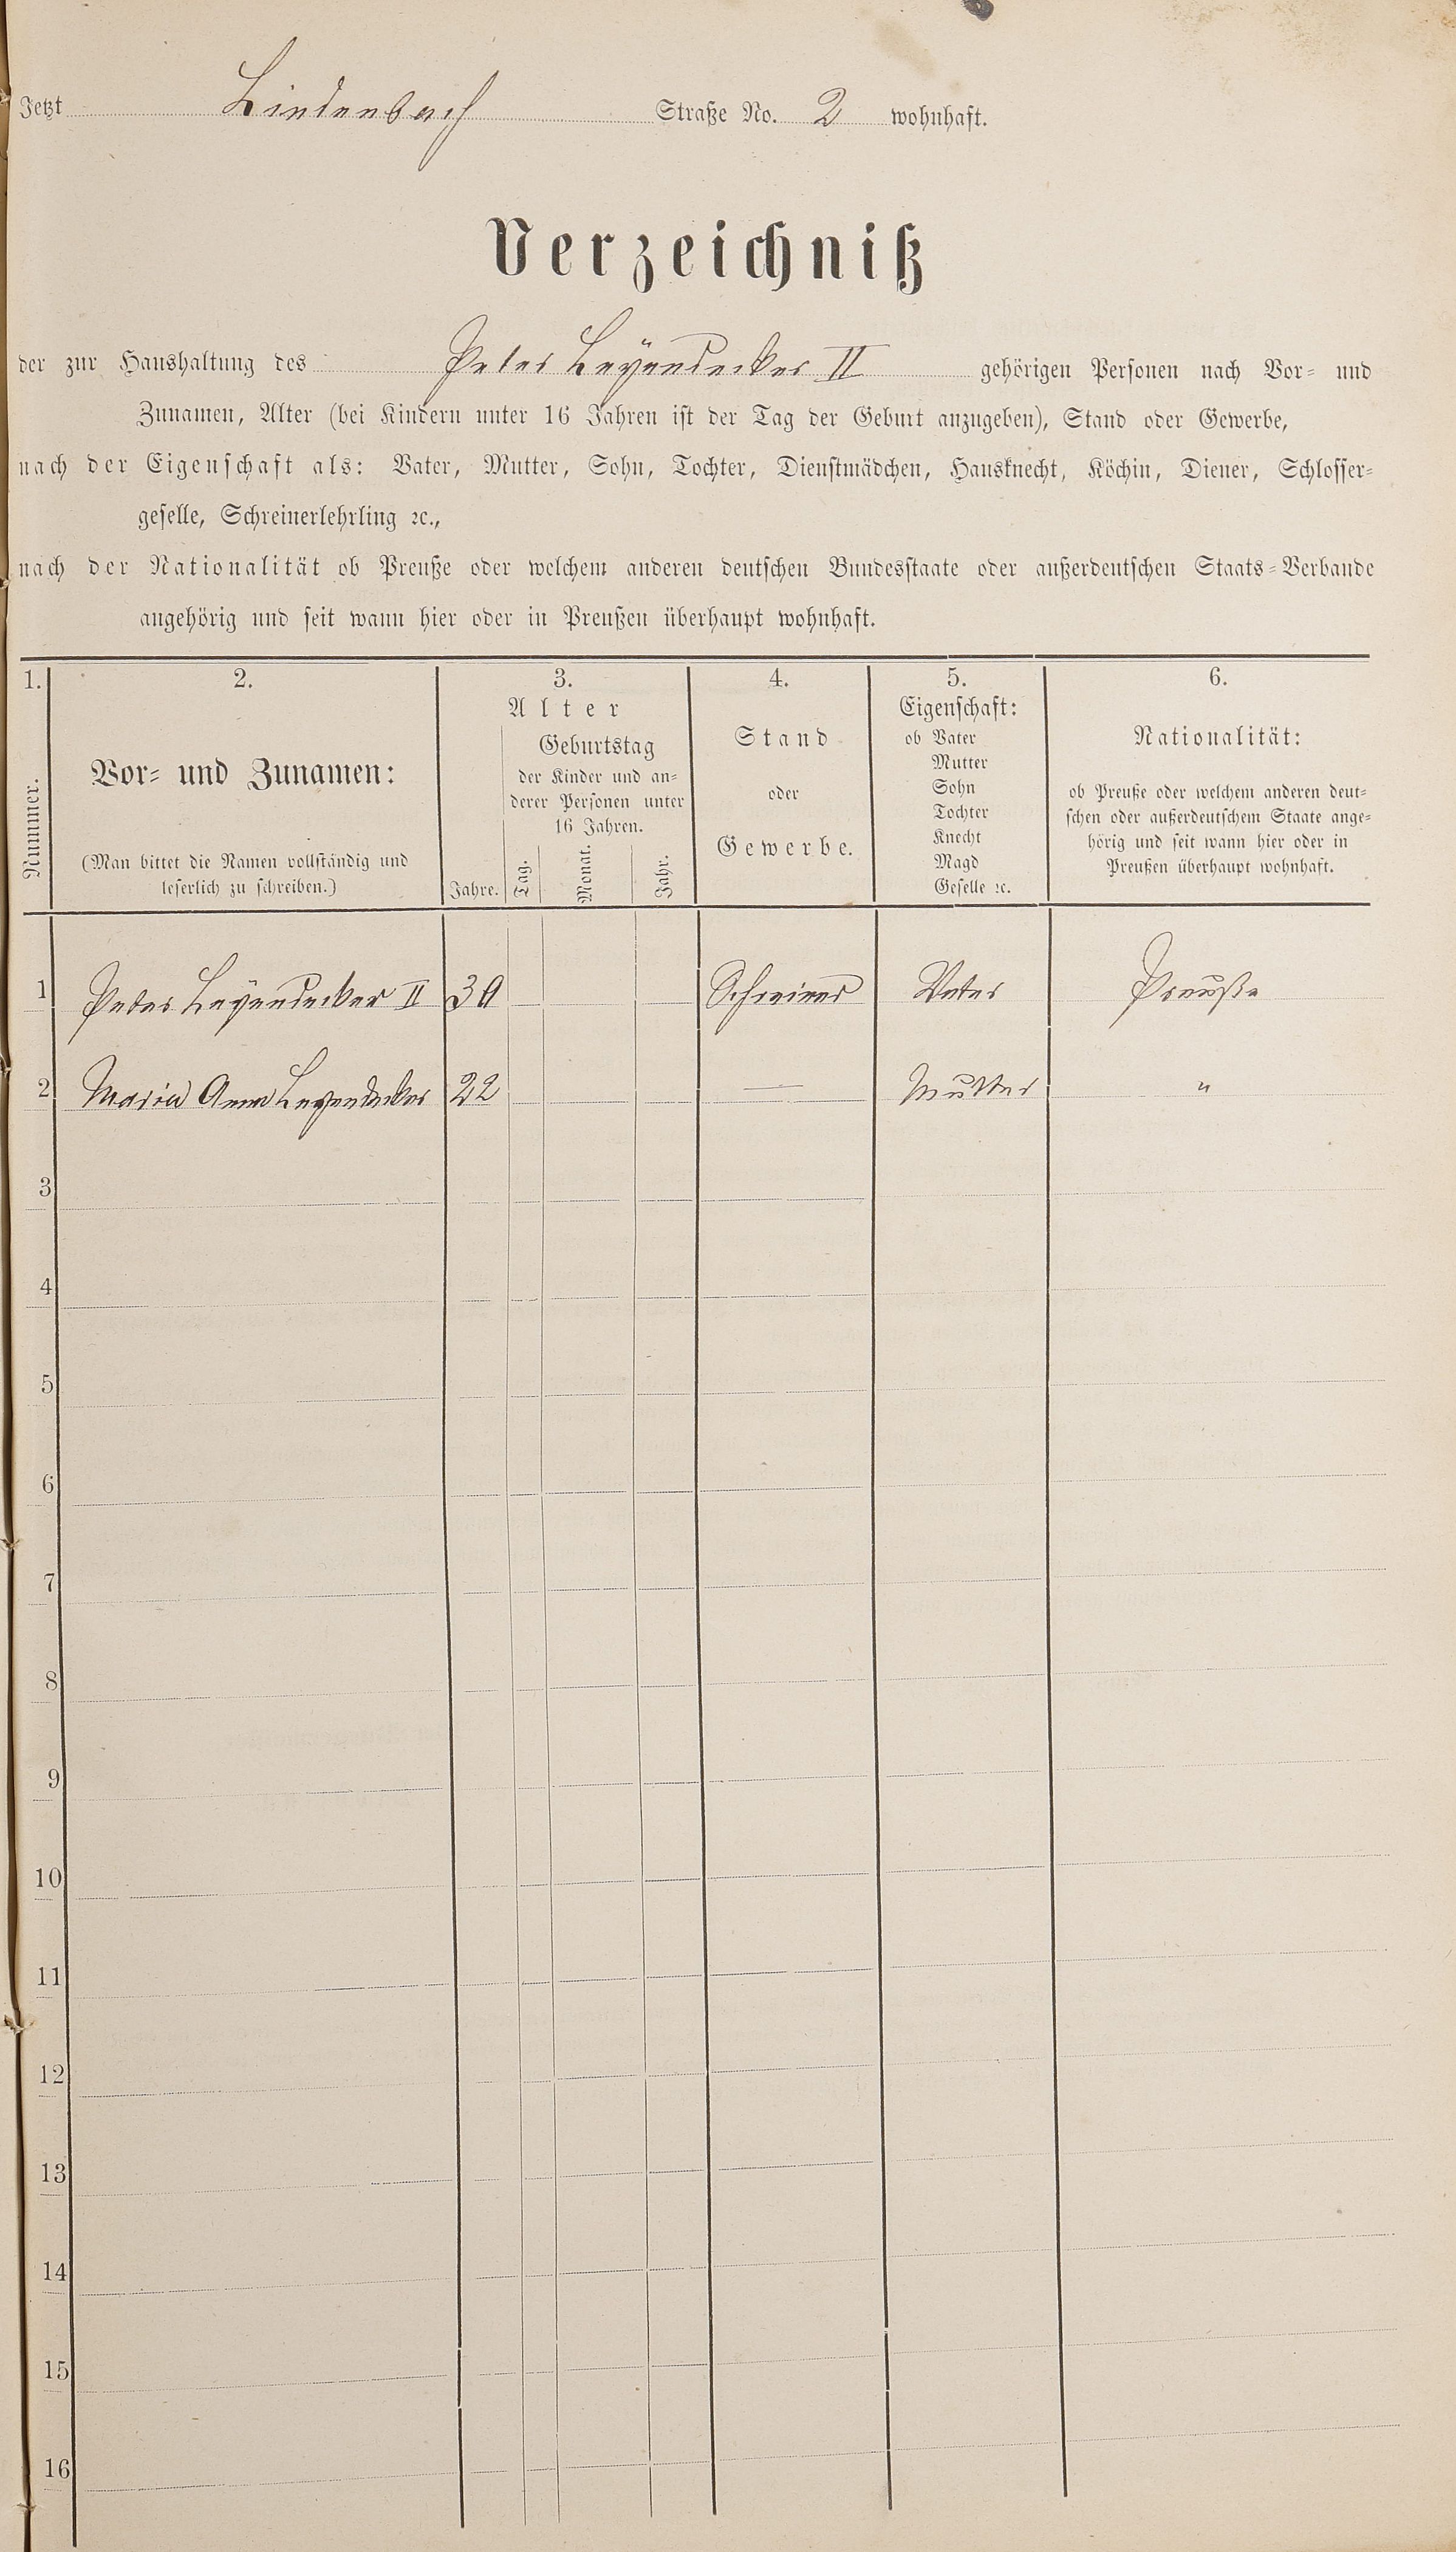 Jetzt Lindenbach Straße No. 2 wohnhaft.
Verzeichniß
der zur Haushaltung des Peter Leyendecker II gehörigen Personen nach Vor- und
Zunamen, Alter (bei Kindern unter 16 Jahren ist der Tag der Geburt anzugeben), Stand oder Gewerbe,
nach der Eigenschaft als: Vater, Mutter, Sohn, Tochter, Dienstmädchen, Hausknecht, Köchin, Diener, Schlosser-
geselle, Schreinerlehrling ꝛc.,
nach der Nationalität ob Preuße oder welchem anderen deutschen Bundesstaate oder außerdeutschen Staats-Verbande
angehörig und seit wann hier oder in Preußen überhaupt wohnhaft.
1. 2. 3. 4. 5. 6.
Nummer.
Vor- und Zunamen:
(Man bittet die Namen vollständig und
leserlich zu schreiben.)
Alter
Jahre.
Geburtstag
der Kinder und an-
derer Personen unter
16 Jahren.
Tag. Monat. Jahr.
Stand
oder
Gewerbe.
Eigenschaft:
ob Vater
Mutter
Sohn
Tochter
Knecht
Magd
Geselle ꝛc.
Nationalität:
ob Preuße oder welchem anderen deut-
schen oder außerdeutschem Staate ange-
hörig und seit wann hier oder in
Preußen überhaupt wohnhaft.
1 Peter Leyendecker II Schreiner Vater Preuße
2 Maria Anna Leyendecker 22 — Mutter "
3
4
5
6
7
8
9
10
11
12
13
14
15
16